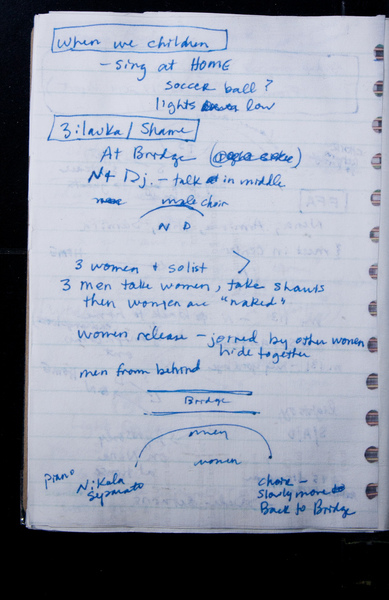 When we children
- sing at HOME
soccer ball?
lights low
Zilavka / Shame
At Bridge
N + Dj. - talk in middle
male choir
N D
3 women + solist
3 men take women, take shawls
then women are "naked"
women release - joined by other women
hide together
men from behind
Bridge
men
women
piano
Nikola
Separate
choir -
slowly move to
Back to Bridge